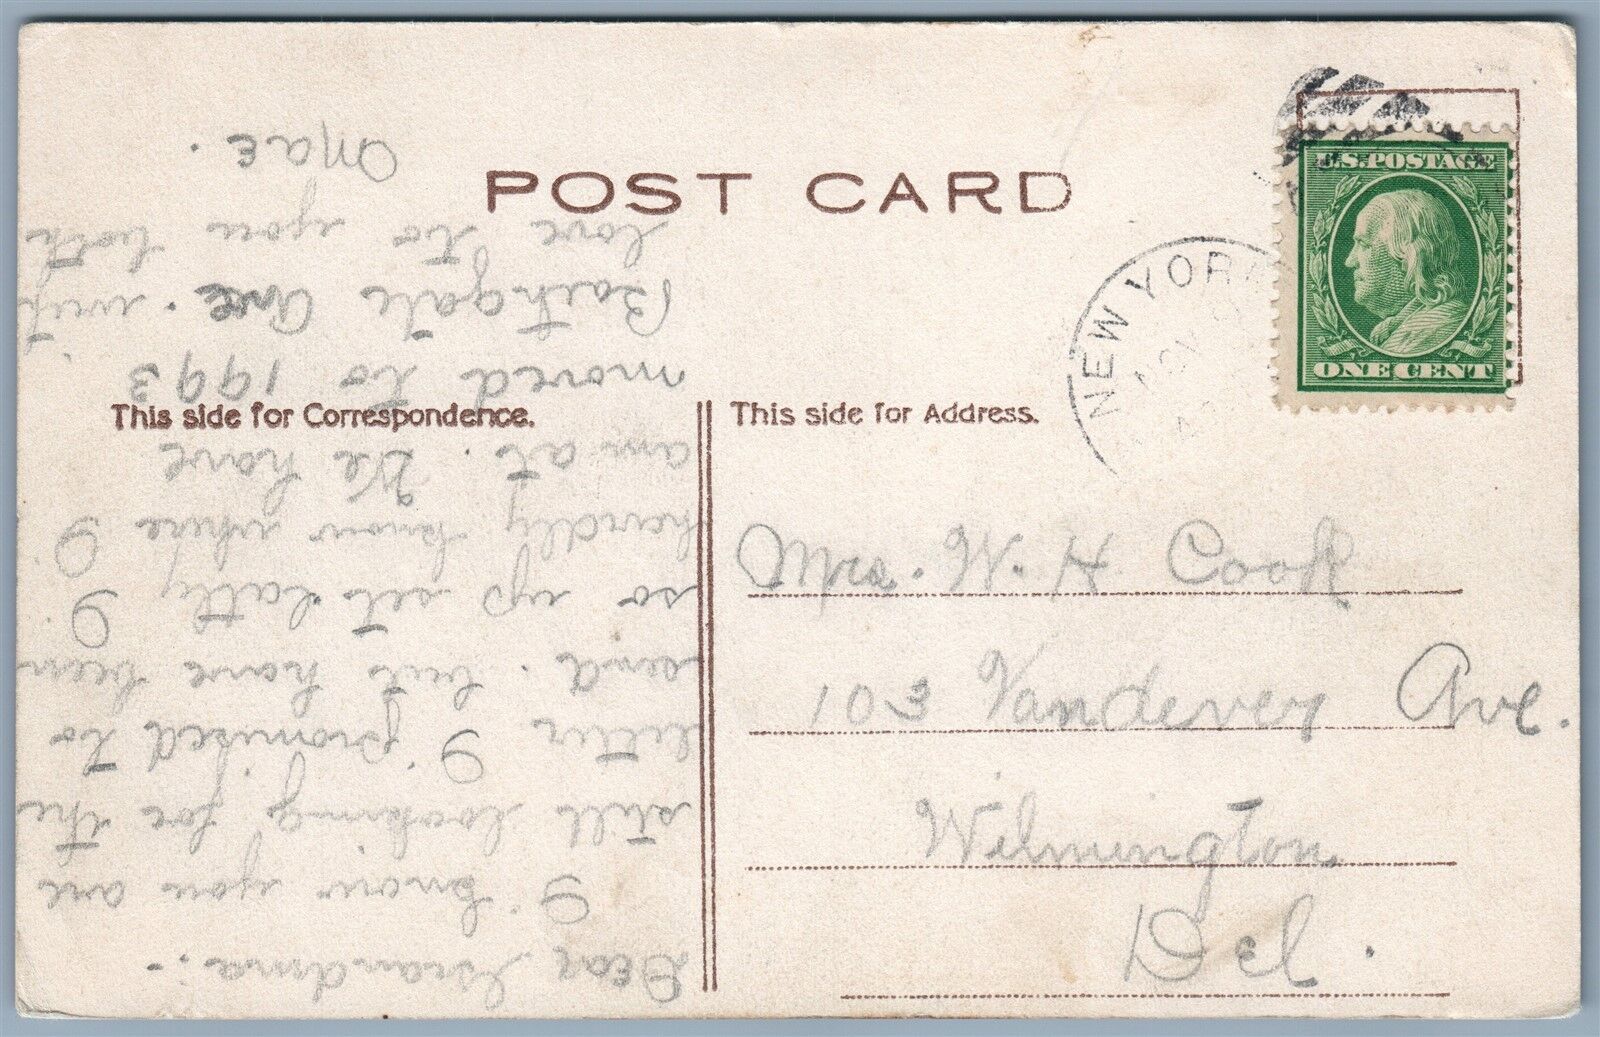 POST CARD
U.S. POSTAGE
ONE CENT
NEW YORK
This side for Correspondence.
This side for Address.
Mrs. W. H Cook
103 Vandever Ave.
Wilmington
Del.
Dear Grandma:-
I know you are
still looking for the
letter I promised to
send. but have been
so up set latly I
hardly know where I
am at. We have
moved to 1993
Bathgate Ave. with
love to you both
Mae.